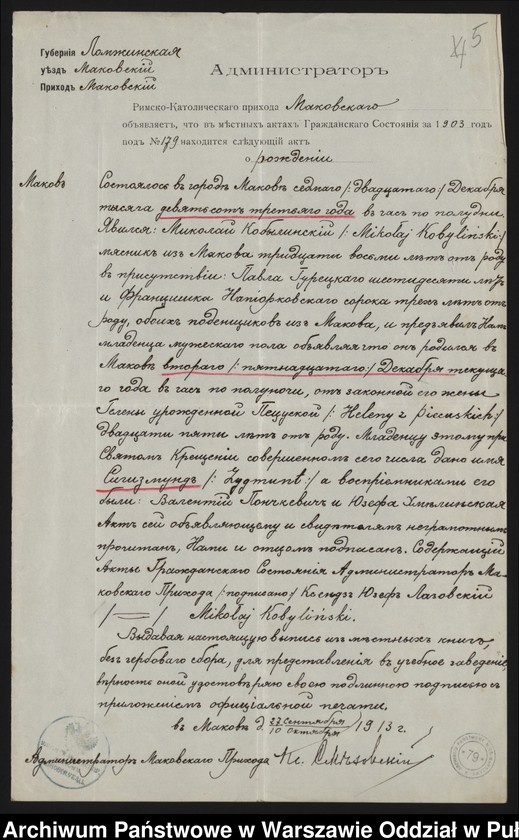 5
Губернія Ломжинская
уѣздъ Маковскій
Приходъ Маковскій
Администраторъ
Римско-Католическаго прихода Маковскаго
объявляетъ, что въ мѣстныхъ актахъ Гражданскаго Состоянія за 1903 годъ
подъ № 179 находится слѣдующій актъ
о рожденіи
Маковъ
Состоялось въ городѣ Маковѣ седмаго /: двадцатаго :/ Декабря
тысяча девятьсотъ третьяго года въ часъ по полудни.
Явился: Миколай Кобылинскій /: Mikołaj Kobyliński :/
мясникъ изъ Макова тридцати восьми лѣтъ отъ роду
въ присутствіи: Павла Гурецкаго шестидесяти лѣтъ
и Францишка Напіорковскаго сорока трехъ лѣтъ отъ
роду, обоихъ поденщиковъ изъ Макова, и предъявилъ Намъ
младенца мужескаго пола объявляя что онъ родился въ
Маковѣ втораго /: пятнадцатаго :/ Декабря текуща-
го года въ часъ по полуночи, отъ законной его жены
Гелены урожденной Пецуской /: Heleny z Piecuskich :/
двадцати пяти лѣтъ отъ роду. Младенцу этому при
Святомъ Крещеніи совершенномъ сего числа дано имя
Сигизмундъ /: Zygmunt :/ а воспріемниками его
были: Валентій Пончкевичъ и Юзефа Хмѣлиньская
Актъ сей объявляющему и свидѣтелямъ неграмотнымъ
прочитанъ, Нами и отцомъ подписанъ. Содержащій
Акты Гражданскаго Состоянія Администраторъ Ма-
ковскаго Прихода /: подписано :/ Ксендзъ Юзефъ Лаговскій
Mikołaj Kobyliński.
Выдавая настоящую выпись изъ мѣстныхъ книгъ,
безъ гербоваго сбора, для представленія въ учебное заведеніе,
вѣрность оной удостовѣряю своею подлинною подписью съ
приложеніемъ офиціальной печати.
въ Маковѣ д. 27 Сентября / 10 Октября 1913 г.
Администраторъ Маковскаго Прихода Кс.
79
Archiwum Państwowe w Warszawie Oddział w Puł